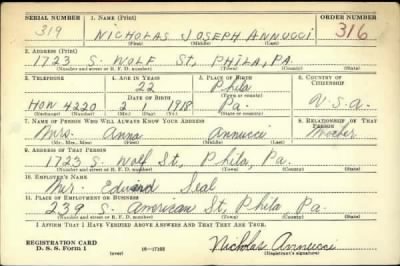 SERIAL NUMBER 1. NAME (Print) ORDER NUMBER
319 NICHOLAS JOSEPH ANNUCCI 316
(First) (Middle) (Last)
2. ADDRESS (Print)
1723 S. WOLF St, PHILA, PA.
(Number and street or R. F. D. number) (Town) (County) (State)
3. TELEPHONE 4. AGE IN YEARS 5. PLACE OF BIRTH 6. COUNTRY OF CITIZENSHIP
22 Phila
DATE OF BIRTH (Town or county)
4220 2 1918 Pa. U.S.A.
(Exchange) (Number) (Mo.) (Day) (Yr.) (State or country)
7. NAME OF PERSON WHO WILL ALWAYS KNOW YOUR ADDRESS 8. RELATIONSHIP OF THAT PERSON
Mrs. Anna Annucci Mother
(Mr., Mrs., Miss) (First) (Middle) (Last)
9. ADDRESS OF THAT PERSON
1723 S. Wolf St, Phila, Pa.
(Number and street or R. F. D. number) (Town) (County) (State)
10. EMPLOYER'S NAME
Mr. Edward Seal
11. PLACE OF EMPLOYMENT OR BUSINESS
239 S. American St, Phila Pa.
(Number and street or R. F. D. number) (Town) (County) (State)
I AFFIRM THAT I HAVE VERIFIED ABOVE ANSWERS AND THAT THEY ARE TRUE.
REGISTRATION CARD
D. S. S. Form 1 Nicholas Annucci
(Registrant's signature)